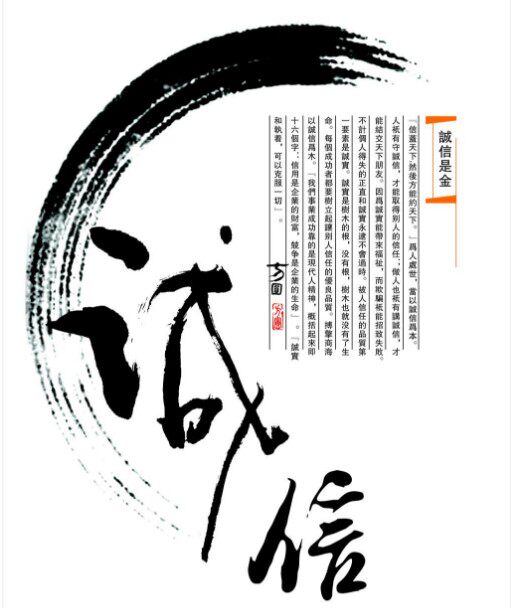 誠信是金
「信蓋天下,然後方能約天下。」爲人處世，當以誠信爲本。
人祇有守誠信，才能取得别人的信任；做人也祇有講誠信，才
能結交天下朋友。因爲誠實能帶來福祉，而欺騙祇能招致失敗。
不計個人得失的正直和誠實永遠不會過時。被人信任的品質第
一要素是誠實。誠實是樹木的根，没有根，樹木也就没有了生
命。每個成功者都要樹立起讓别人信任的優良品質。搏擊商海
以誠信爲木。「我們事業成功靠的是現代人精神，概括起來即
十六個字：信用是企業的财富，競争是企業的生命」。「誠實
和執着，可以克服一切」。
方圓
誠信